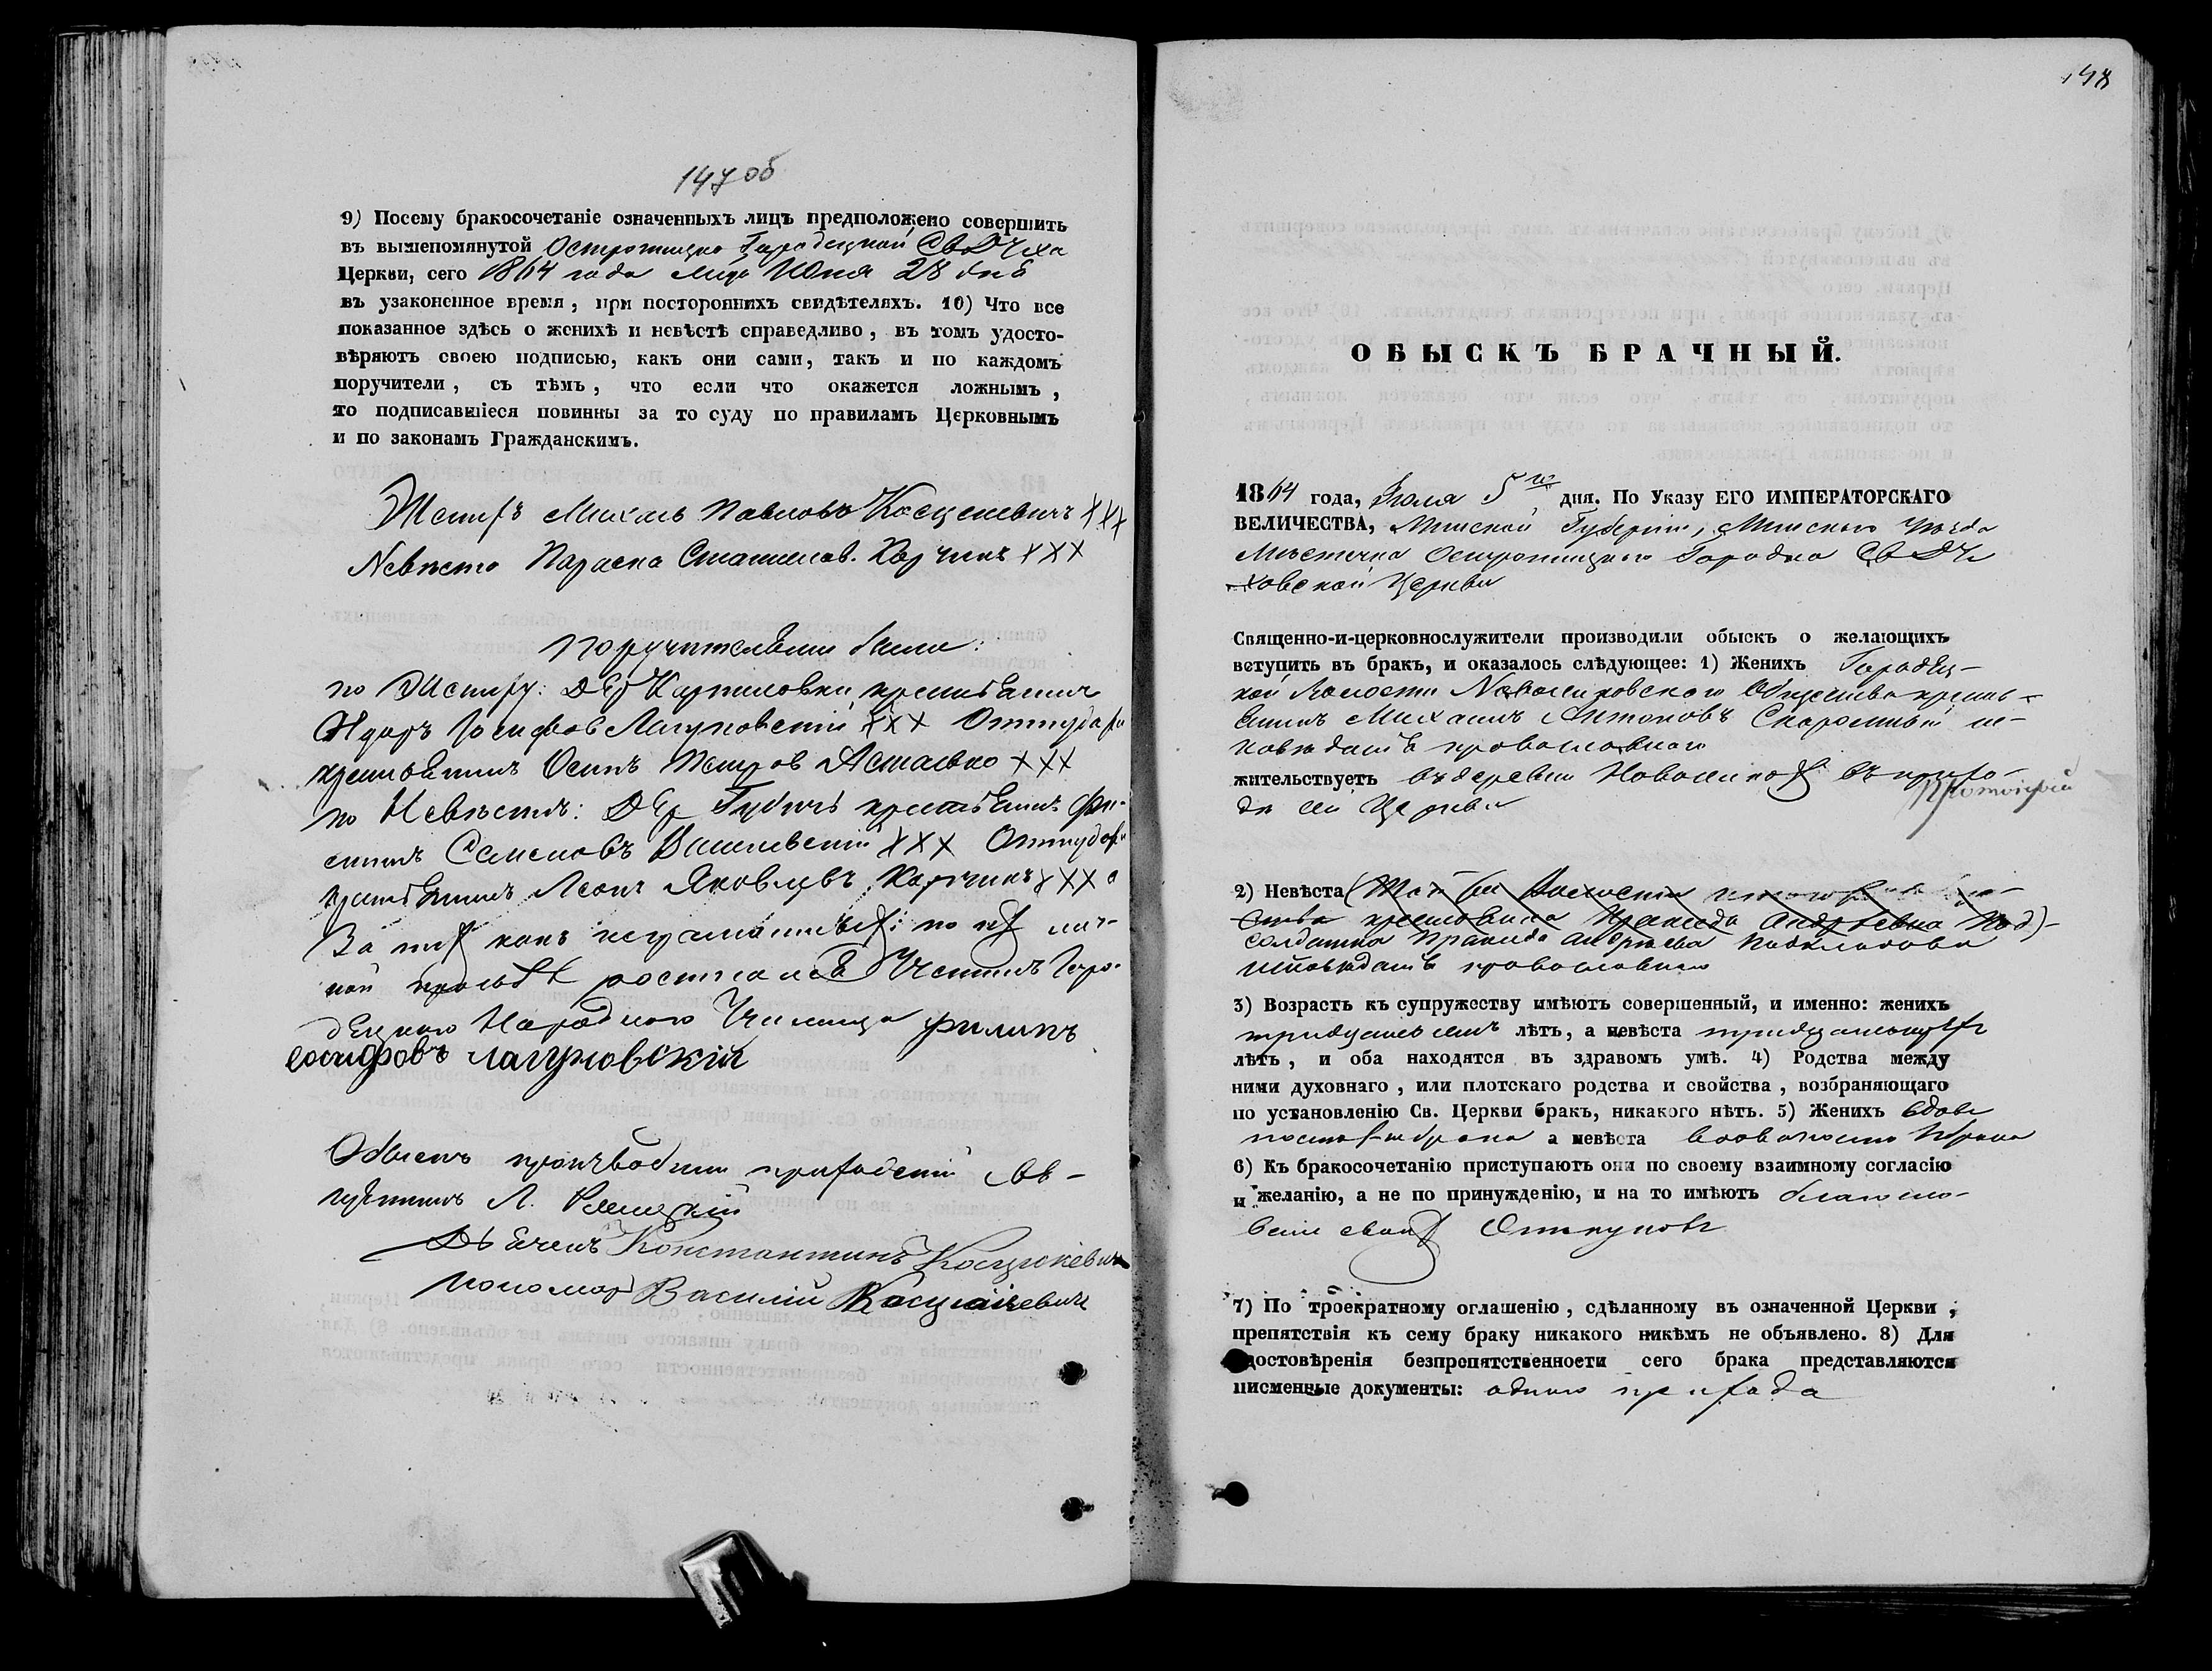 147 об
9) Посему бракосочетаніе означенныхъ лицъ предположено совершить
въ вышепомянутой Остротицко Городецкой Св Д Чха
Церкви, сего 1864 года Юня 28 дня
въ узаконенное время, при постороннихъ свидѣтеляхъ. 10) Что все
показанное здѣсь о женихѣ и невѣстѣ справедливо, въ томъ удосто-
вѣряютъ своею подписью, какъ они сами, такъ и по каждомъ
поручители, съ тѣмъ, что если что окажется ложнымъ,
то подписавшіеся повинны за то суду по правиламъ Церковнымъ
и по законамъ Гражданскимъ.
Михаль Павловъ Косцюкевичъ ХХХ
Параска Харчикъ ХХХ
Поручителями были:
по Жениху: Дер Карпиловки крестьянинъ
Іосифовъ Лагуновскій ХХХ
крестьянинъ Осипъ Петровъ ХХХ
по Невѣстѣ: Дер Губичъ крестьянинъ
Семеновъ ХХХ
крестьянинъ Леонъ Яковлевъ Харчикъ ХХХ а
За тѣхъ какъ неграмотныхъ по ихъ лич-
ной прозьбѣ росписался Учитель Горо-
децкого Народного Училища Филипъ
Іосифовъ Лагуновскій
Обыскъ производили приходскій Свя-
щенникъ Л.
Дьячекъ Константинъ Косцюкевичъ
Пономарь Василій Косцюкевичъ
148
ОБЫСКЪ БРАЧНЫЙ.
1864 года, Іюля 5го дня. По Указу ЕГО ИМПЕРАТОРСКАГО
ВЕЛИЧЕСТВА, Минской Губерніи, Минского Уѣзда
Мѣстечка Остротицкого Городка Св Д Чи
ховской Церкви
Священно-и-церковнослужители производили обыскъ о желающихъ
вступить въ бракъ, и оказалось слѣдующее: 1) Женихъ Городец-
кой Волости Новоселковского Общества кресть-
янинъ Михаилъ Антоновъ ис-
повѣданія православного
жительствуетъ въ деревни Новоселкахъ въ прихо-
дѣ сей Церкви
2) Невѣста (Той же Волости
ства крестьянка Пракседа Андреевна Под)-
солдатка Пракседа Андреева
исповѣданія православного
3) Возрасть къ супружеству имѣютъ совершенный, и именно: женихъ
тридцать лѣтъ, а невѣста
лѣтъ, и оба находятся въ здравомъ умѣ. 4) Родства между
ними духовнаго, или плотскаго родства и свойства, возбраняющаго
по установленію Св. Церкви бракъ, никакого нѣтъ. 5) Женихъ вдовъ
брака а невѣста брака
6) Къ бракосочетанію приступаютъ они по своему взаимному согласію
и желанію, а не по принужденію, и на то имѣютъ благосло-
веніе своихъ Опекуновъ
7) По троекратному оглашенію, сдѣланному въ означенной Церкви,
препятствія къ сему браку никакого никѣмъ не объявлено. 8) Для
удостовѣренія безпрепятственности сего брака представляются
писменные документы: одного прихода